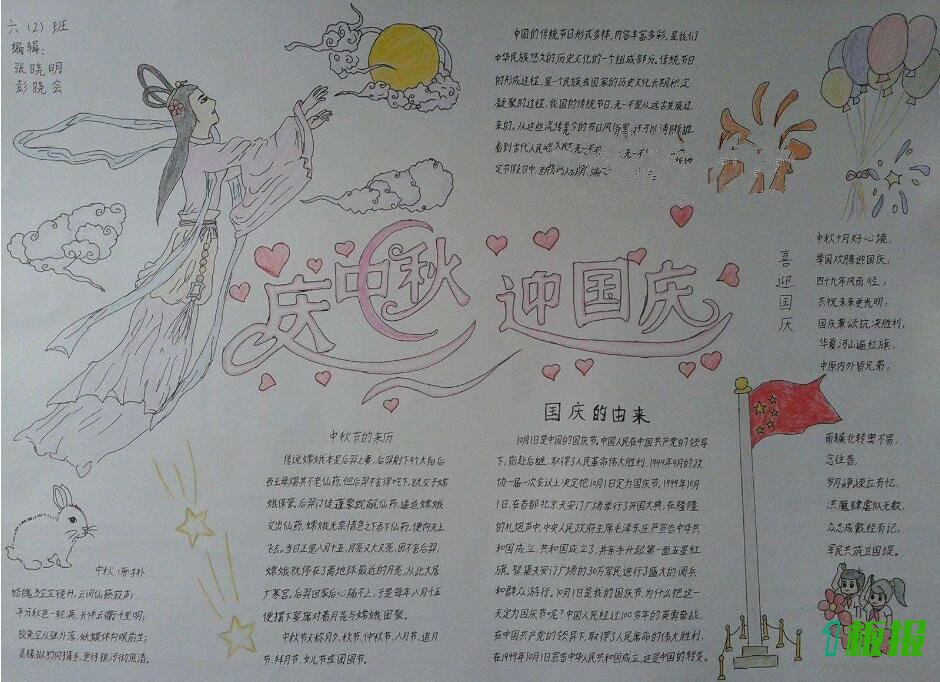 六（2）班
编辑：
张晓明
彭晓会
中国的传统节日形式多样，内容丰富多彩，是我们
中华民族悠久的历史文化的一个组成部分。传统节日
的形成过程，是一个民族或国家的历史文化长期积淀
凝聚的过程，我国的传统节日，无一不是从远古发展过
来的，从这些流传至今的节日风俗里，还可以清晰地
看到古代人民
定节假日中
庆中秋 迎国庆
喜迎国庆
中秋十月好心境，
举国欢腾迎国庆，
四十九年风雨径，
共祝未来更光明，
国庆兼颂抗决胜利，
华夏河山遍红旗，
中原内外皆兄弟，
南辕北辙要不易，
忘往昔，
岁月峥嵘应有忆，
洪魔肆虐似无数，
众志成城经有记，
军民共筑卫国堤。
中秋节的来历
传说嫦娥本是后羿之妻，后羿射下9个太阳后
西王母赐其不老仙药，但后羿不舍得吃下，就交于嫦
娥保管。后羿门徒蓬蒙觊觎仙药，逼迫嫦娥
交出仙药，嫦娥无奈情急之下吞下仙药，便向天上
飞去。当日正是八月十五，月亮又大又亮，因不舍后羿，
嫦娥就停在了离地球最近的月亮，从此长居
广寒宫。后羿回家后心痛不止，于是每年八月十五
便摆下宴席对着月亮与嫦娥团聚。
中秋节又称月夕，秋节，仲秋节，八月节，追月
节，拜月节，女儿节或团圆节。
国庆的由来
10月1日是中国的国庆节。中国人民在中国共产党的领导
下，前赴后继，取得了人民革命伟大胜利，1949年9月的政
协一届一次会议上决定把10月1日定为国庆节。1949年10月
1日，在首都北京天安门广场举行了开国大典，在隆隆
的礼炮声中，中央人民政府主席毛泽东庄严宣告中华共
和国成立，共和国成立了，并亲手升起第一面五星红
旗。聚集天安门广场的30万军民进行了盛大的阅兵
和群众游行。10月1日是我的国庆节，为什么把这一
天定为国庆节呢？中国人民经过100多年的英勇奋战，
在中国共产党的领导下，取得了人民革命的伟大胜利，
在1949年10月1日宣告中华人民共和国成立，这是中国的转变。
中秋（唐）李朴
皓魄当空宝镜升，云间仙籁寂无声；
平分秋色一轮满，长伴云衢千里明；
狡兔空从弦外落，妖蟆休向眼前生；
灵槎拟约同携手，更待银河彻底清。
1板报